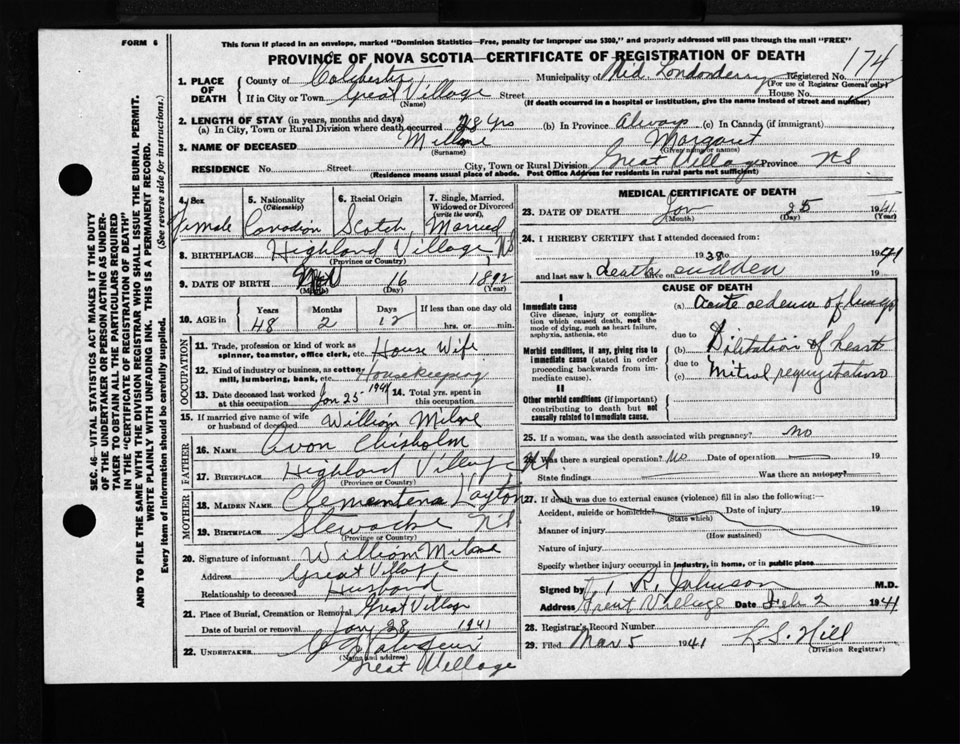 FORM 6
This form if placed in an envelope, marked "Dominion Statistics—Free, penalty for improper use $300," and properly addressed will pass through the mail "FREE"
PROVINCE OF NOVA SCOTIA—CERTIFICATE OF REGISTRATION OF DEATH
174
1. PLACE OF DEATH
County of Colchester Municipality of Mid. Londonderry Registered No.
(For use of Registrar General only)
If in City or Town Great Village Street House No.
(Name) (If death occurred in a hospital or institution, give the name instead of street and number)
2. LENGTH OF STAY (in years, months and days)
(a) In City, Town or Rural Division where death occurred 28 yrs (b) In Province Always (c) In Canada (if immigrant)
3. NAME OF DECEASED Milne Margaret
(Surname) (Given name or names)
RESIDENCE No. Street City, Town or Rural Division Great Village Province N S
(Residence means usual place of abode. Post Office Address for residents in rural parts not sufficient)
4. Sex Female
5. Nationality (Citizenship) Canadian
6. Racial Origin Scotch
7. Single, Married, Widowed or Divorced (write the word) Married
8. BIRTHPLACE Highland Village, NS
(Province or Country)
9. DATE OF BIRTH 16 1892
(Month) (Day) (Year)
10. AGE in Years Months Days If less than one day old
48 2 12 hrs. or min.
OCCUPATION
11. Trade, profession or kind of work as spinner, teamster, office clerk, etc. House Wife
12. Kind of industry or business, as cotton-mill, lumbering, bank, etc. Housekeeping
13. Date deceased last worked at this occupation Jan 25 1941
14. Total yrs. spent in this occupation
15. If married give name of wife or husband of deceased William Milne
FATHER
16. NAME Avon Chisholm
17. BIRTHPLACE Highland Village N.S.
(Province or Country)
MOTHER
18. MAIDEN NAME Clementena Layton
19. BIRTHPLACE Stewacke N S
(Province or Country)
20. Signature of informant William Milne
Address Great Village
Relationship to deceased Husband
21. Place of Burial, Cremation or Removal Great Village
Date of burial or removal Jan 28 1941
22. UNDERTAKER
(Name and address)
Great Village
MEDICAL CERTIFICATE OF DEATH
23. DATE OF DEATH Jan 25 1941
(Month) (Day) (Year)
24. I HEREBY CERTIFY that I attended deceased from:
1938 to 1941
and last saw h alive on 19
death sudden
CAUSE OF DEATH
I
Immediate cause
Give disease, injury or complication which caused death, not the mode of dying, such as heart failure, asphyxia, asthenia, etc
(a) Acute oedema of lungs
due to
Morbid conditions, if any, giving rise to immediate cause (stated in order proceeding backwards from immediate cause).
(b) Dilitation of heart
due to
(c) Mitral regurgitation
II
Other morbid conditions (if important) contributing to death but not causally related to immediate cause.
25. If a woman, was the death associated with pregnancy? no
26. Was there a surgical operation? No Date of operation 19
State findings Was there an autopsy?
27. If death was due to external causes (violence) fill in also the following:—
Accident, suicide or homicide? Date of injury 19
(State which)
Manner of injury
(How sustained)
Nature of injury
Specify whether injury occurred in industry, in home, or in public place
Signed by T. R. Johnson M.D.
Address Great Village Date Feb 2 1941
28. Registrar's Record Number
29. Filed Mar 5 1941 L. S. Hill
(Division Registrar)
SEC. 46—VITAL STATISTICS ACT MAKES IT THE DUTY OF THE UNDERTAKER OR PERSON ACTING AS UNDERTAKER TO OBTAIN ALL THE PARTICULARS REQUIRED IN THE "CERTIFICATE OF REGISTRATION OF DEATH" AND TO FILE THE SAME WITH THE DIVISION REGISTRAR WHO SHALL ISSUE THE BURIAL PERMIT.
WRITE PLAINLY WITH UNFADING INK. THIS IS A PERMANENT RECORD.
Every item of information should be carefully supplied. (See reverse side for instructions.)